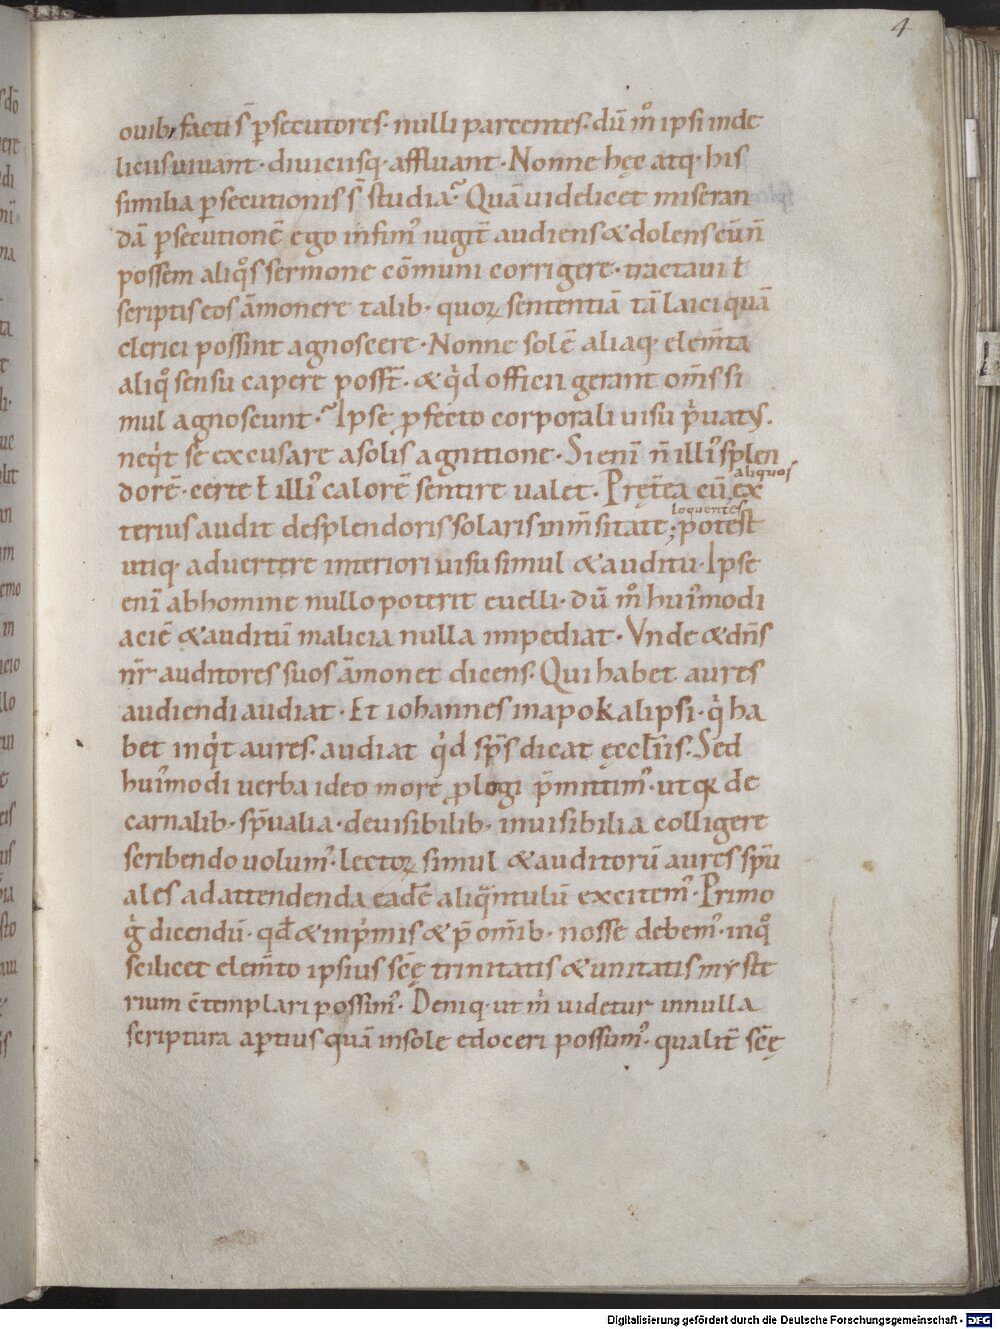 4
ouib; facti s̄ p̱secutores· nulli parcentes· dū m̊ ipsi inde
licusuiuant· diuiciisq· affluant· Nonne hęę atq· his
similia p̱secutionis s̄ studia? Quā uidelicet miseran
dā p̱secutionē ego infim᾽ iugit̄ audiens & dolens cū n̄
possem aliq̊s sermone cōmuni corrigere· tractaui ł
scriptis eos āmonere talib· quoꝝ sententiā tā laici quā
clerici possint agnoscere· Nonne solē aliaq· elem̄ta
aliq̊ sensu capere poss̄t· & q̇d officii gerant om̄s si
mul agnoscunt? Ipse ꝓfecto corporali uisu ṗuatꝰ·
neq̇t se excusare a solis agnitione· Si enī n̄ illi᾽ splen
aliquos
dorē· certe ł illi᾽ calorē sentire ualet· Pręt̄ea cū ex
loquentes
terius audit de splendoris solaris inm̄sitate; potest
utiq· aduertere interiori uisu simul & auditu· Ipse
enī ab homine nullo poterit euelli· dū m̊ hui᾽modi
aciē & auditū malicia nulla impediat· Vnde & dn̄s
nr̄ auditores suos āmonet dicens· Qui habet aures
audiendi audiat· Et iohannes in apokalipsi· q̇ ha
bet inq̇t aures· audiat q̇d sp̄s dicat ęccłiis· Sed
hui᾽modi uerba ideo more ꝓlogi p̄mittim᾽· ut q̇a de
carnalib· sp̄ualia· de uisibilib· inuisibilia colligere
scribendo uolum᾽· lectoꝝ simul & auditorū aures sp̄u
ales ad attendenda eadē aliq̄ntulū excitem᾽· Primo
g̊ dicendū· qđ & inṗmis & p̄ om̄ib· nosse debem᾽· in q̊
scilicet elem̄to ipsius sc̄ę trinitatis & unitatis myste
rium c̄templari possim᾽· Deniq· ut ṁ uidetur in nulla
scriptura ap̱tius quā in sole edoceri possum᾽· qualit̄ sc̄ę
Digitalisierung gefördert durch die Deutsche Forschungsgemeinschaft - DFG